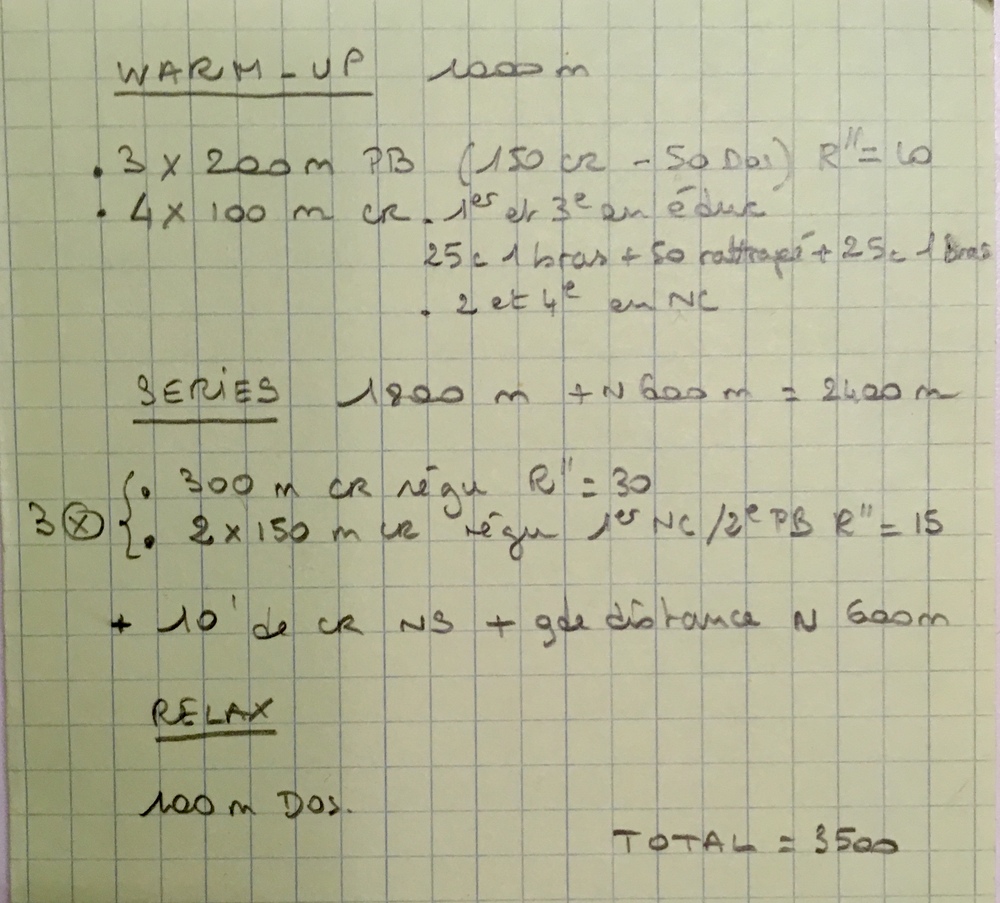 WARM-UP 1000m
. 3 x 200m PB (150 CR - 50 Dos) R"= 10
. 4 x 100 m CR . 1er et 3e en éduc
25c 1 bras + 50 rattrapé + 25c 1 Bras
. 2 et 4e en NC
SERIES 1800 m + N 600 m = 2400 m
. 300 m CR régu R"= 30
3 x
. 2 x 150 m CR régu 1er NC / 2e PB R"= 15
+ 10' de CR NS + gde distance N 600m
RELAX
100m Dos.
TOTAL = 3500